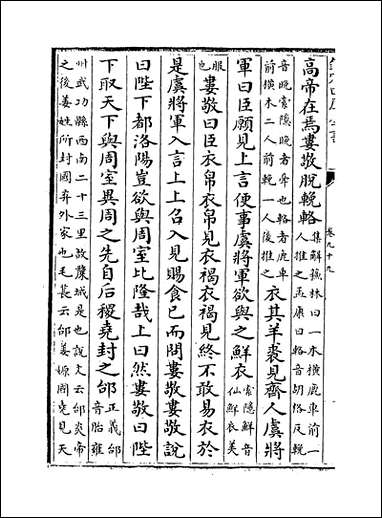 卷九十九
高帝在焉婁敬脫輓輅集解蘇林曰一木橫鹿車前一人推之孟康曰輅音胡格反輓
音晚索隱輓者牽也輅者鹿車前橫木二人前輓一人後推之衣其羊裘見齊人虞將
軍曰臣願見上言便事虞將軍欲與之鮮衣索隱鮮音仙鮮衣美
服也婁敬曰臣衣帛衣帛見衣褐衣褐見終不敢易衣於
是虞將軍入言上上召入見賜食已而問婁敬婁敬說
曰陛下都洛陽豈欲與周室比隆哉上曰然婁敬曰陛
下取天下與周室異周之先自后稷堯封之邰正義邰音胎雍
州武功縣西南二十三里故斄城是也說文云邰炎帝
之後姜姓所封國弃外家也毛萇云邰姜嫄國堯見天